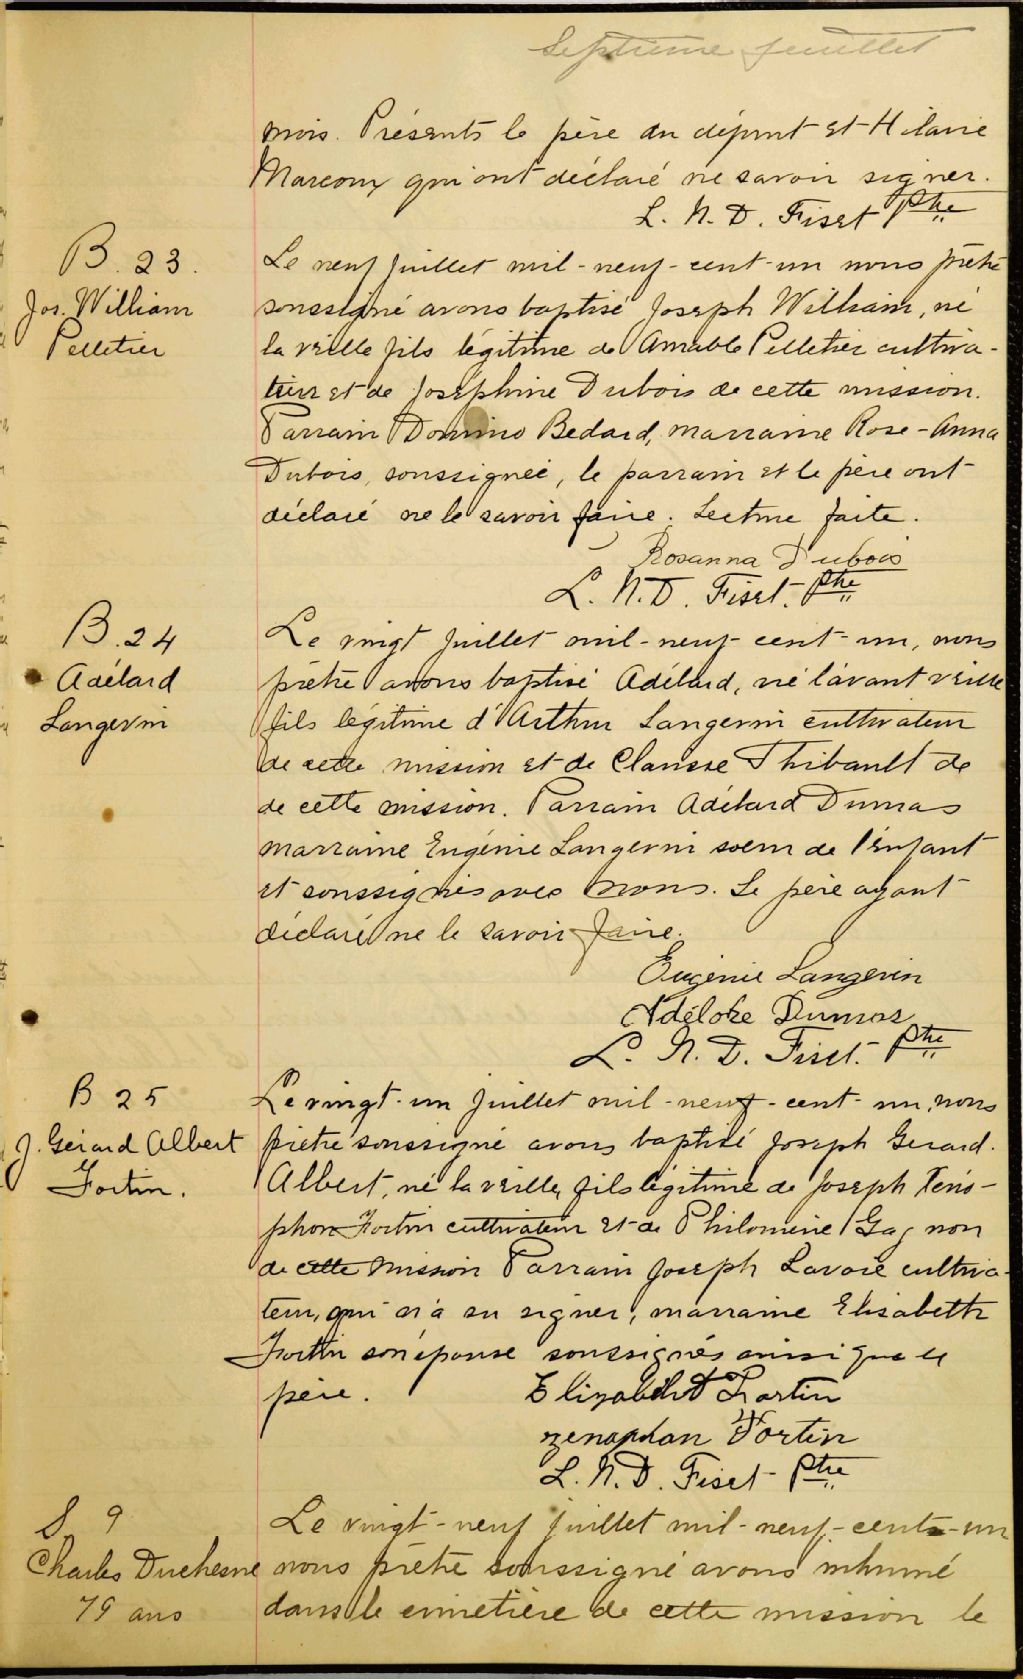 Septième feuillet
mois. Présents le père du défunt et Hilaire
Marcoux qui ont déclaré ne savoir signer.
L. N. D. Fiset Ptre
B. 23.
Jos. William
Pelletier
Le neuf juillet mil-neuf-cent-un nous prêtre
soussigné avons baptisé Joseph William, né
la veille fils légitime de Amable Pelletier cultiva-
teur et de Joséphine Dubois de cette mission.
Parrain Domino Bedard, marraine Rose-Anna
Dubois, soussignée, le parrain et le père ont
déclaré ne le savoir faire. Lecture faite.
Rosanna Dubois
L. N. D. Fiset. Ptre
B. 24
Adélard
Langevin
Le vingt juillet mil-neuf-cent-un, nous
prêtre avons baptisé Adélard, né l'avant veille
fils légitime d'Arthur Langevin cultivateur
de cette mission et de Clarisse Thibault de
de cette mission. Parrain Adélard Dumas
marraine Eugénie Langevin soeur de l'enfant
et soussignés avec nous. Le père ayant
déclaré ne le savoir faire.
Eugénie Langevin
Adélore Dumas
L. N. D. Fiset. Ptre
B 25
J. Gérard Albert
Fortin.
Le vingt-un juillet mil-neuf-cent-un, nous
prêtre soussigné avons baptisé Joseph Gerard.
Albert, né la veille, fils légitime de Joseph Xéno-
phon Fortin cultivateur et de Philomène Gagnon
de cette mission Parrain Joseph Lavoie cultiva-
teur, qui n'a su signer, marraine Elisabeth
Fortin son épouse soussignés ainsi que le
père.
Elizabeht Fortin
zenophan Fortin
L. N. D. Fiset Ptre
S 9
Charles Duchesne
79 ans
Le vingt-neuf juillet mil-neuf-cent-un
nous prêtre soussigné avons inhumé
dans le cimetière de cette mission le